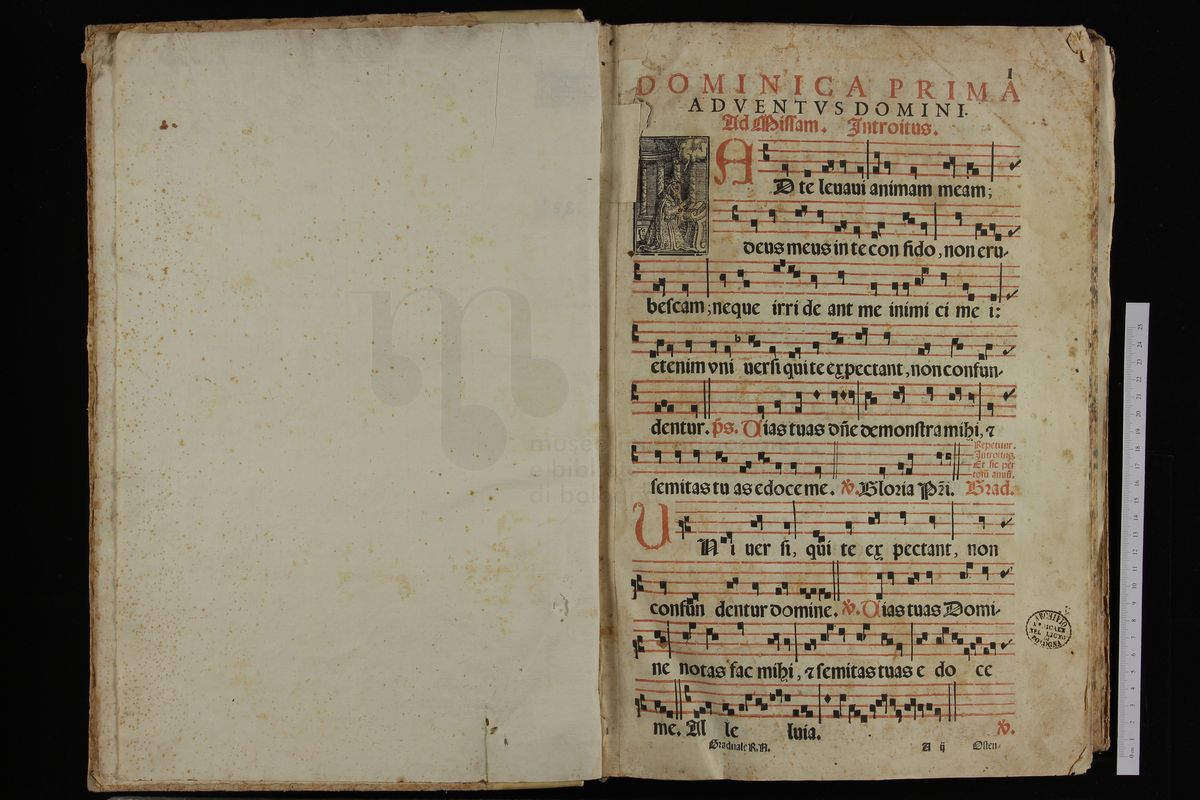 1
DOMINICA PRIMA
ADVENTVS DOMINI.
Ad Missam. Introitus.
AD te leuaui animam meam;
deus meus in te con fido, non eru-
bescam; neque irri de ant me inimi ci me i:
etenim vni uersi qui te expectant, non confun-
dentur. p̄s. Uias tuas dñe demonstra mihi, ⁊
Repetitur.
Introitus.
Et sic per
totũ annũ.
semitas tu as edoce me. ℣. Gloria Pr̄i. Grad.
UNi uer si, qui te ex pectant, non
confun dentur domine. ℣. Uias tuas Domi-
ne notas fac mihi, ⁊ semitas tuas e do ce
me. Al le luia. ℣.
Graduale R.N. A ij Osten-
ARCHIVIO
MUSICALE
DEL LICEO
DI
BOLOGNA
museo
e bibliote
di bologna